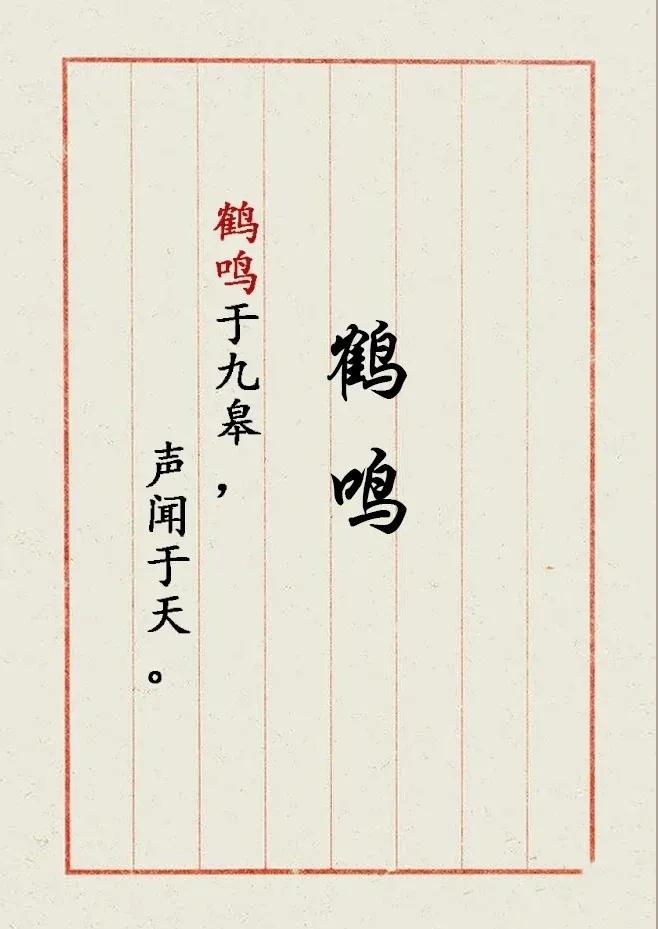 鹤鸣
鹤鸣于九皋，
声闻于天。